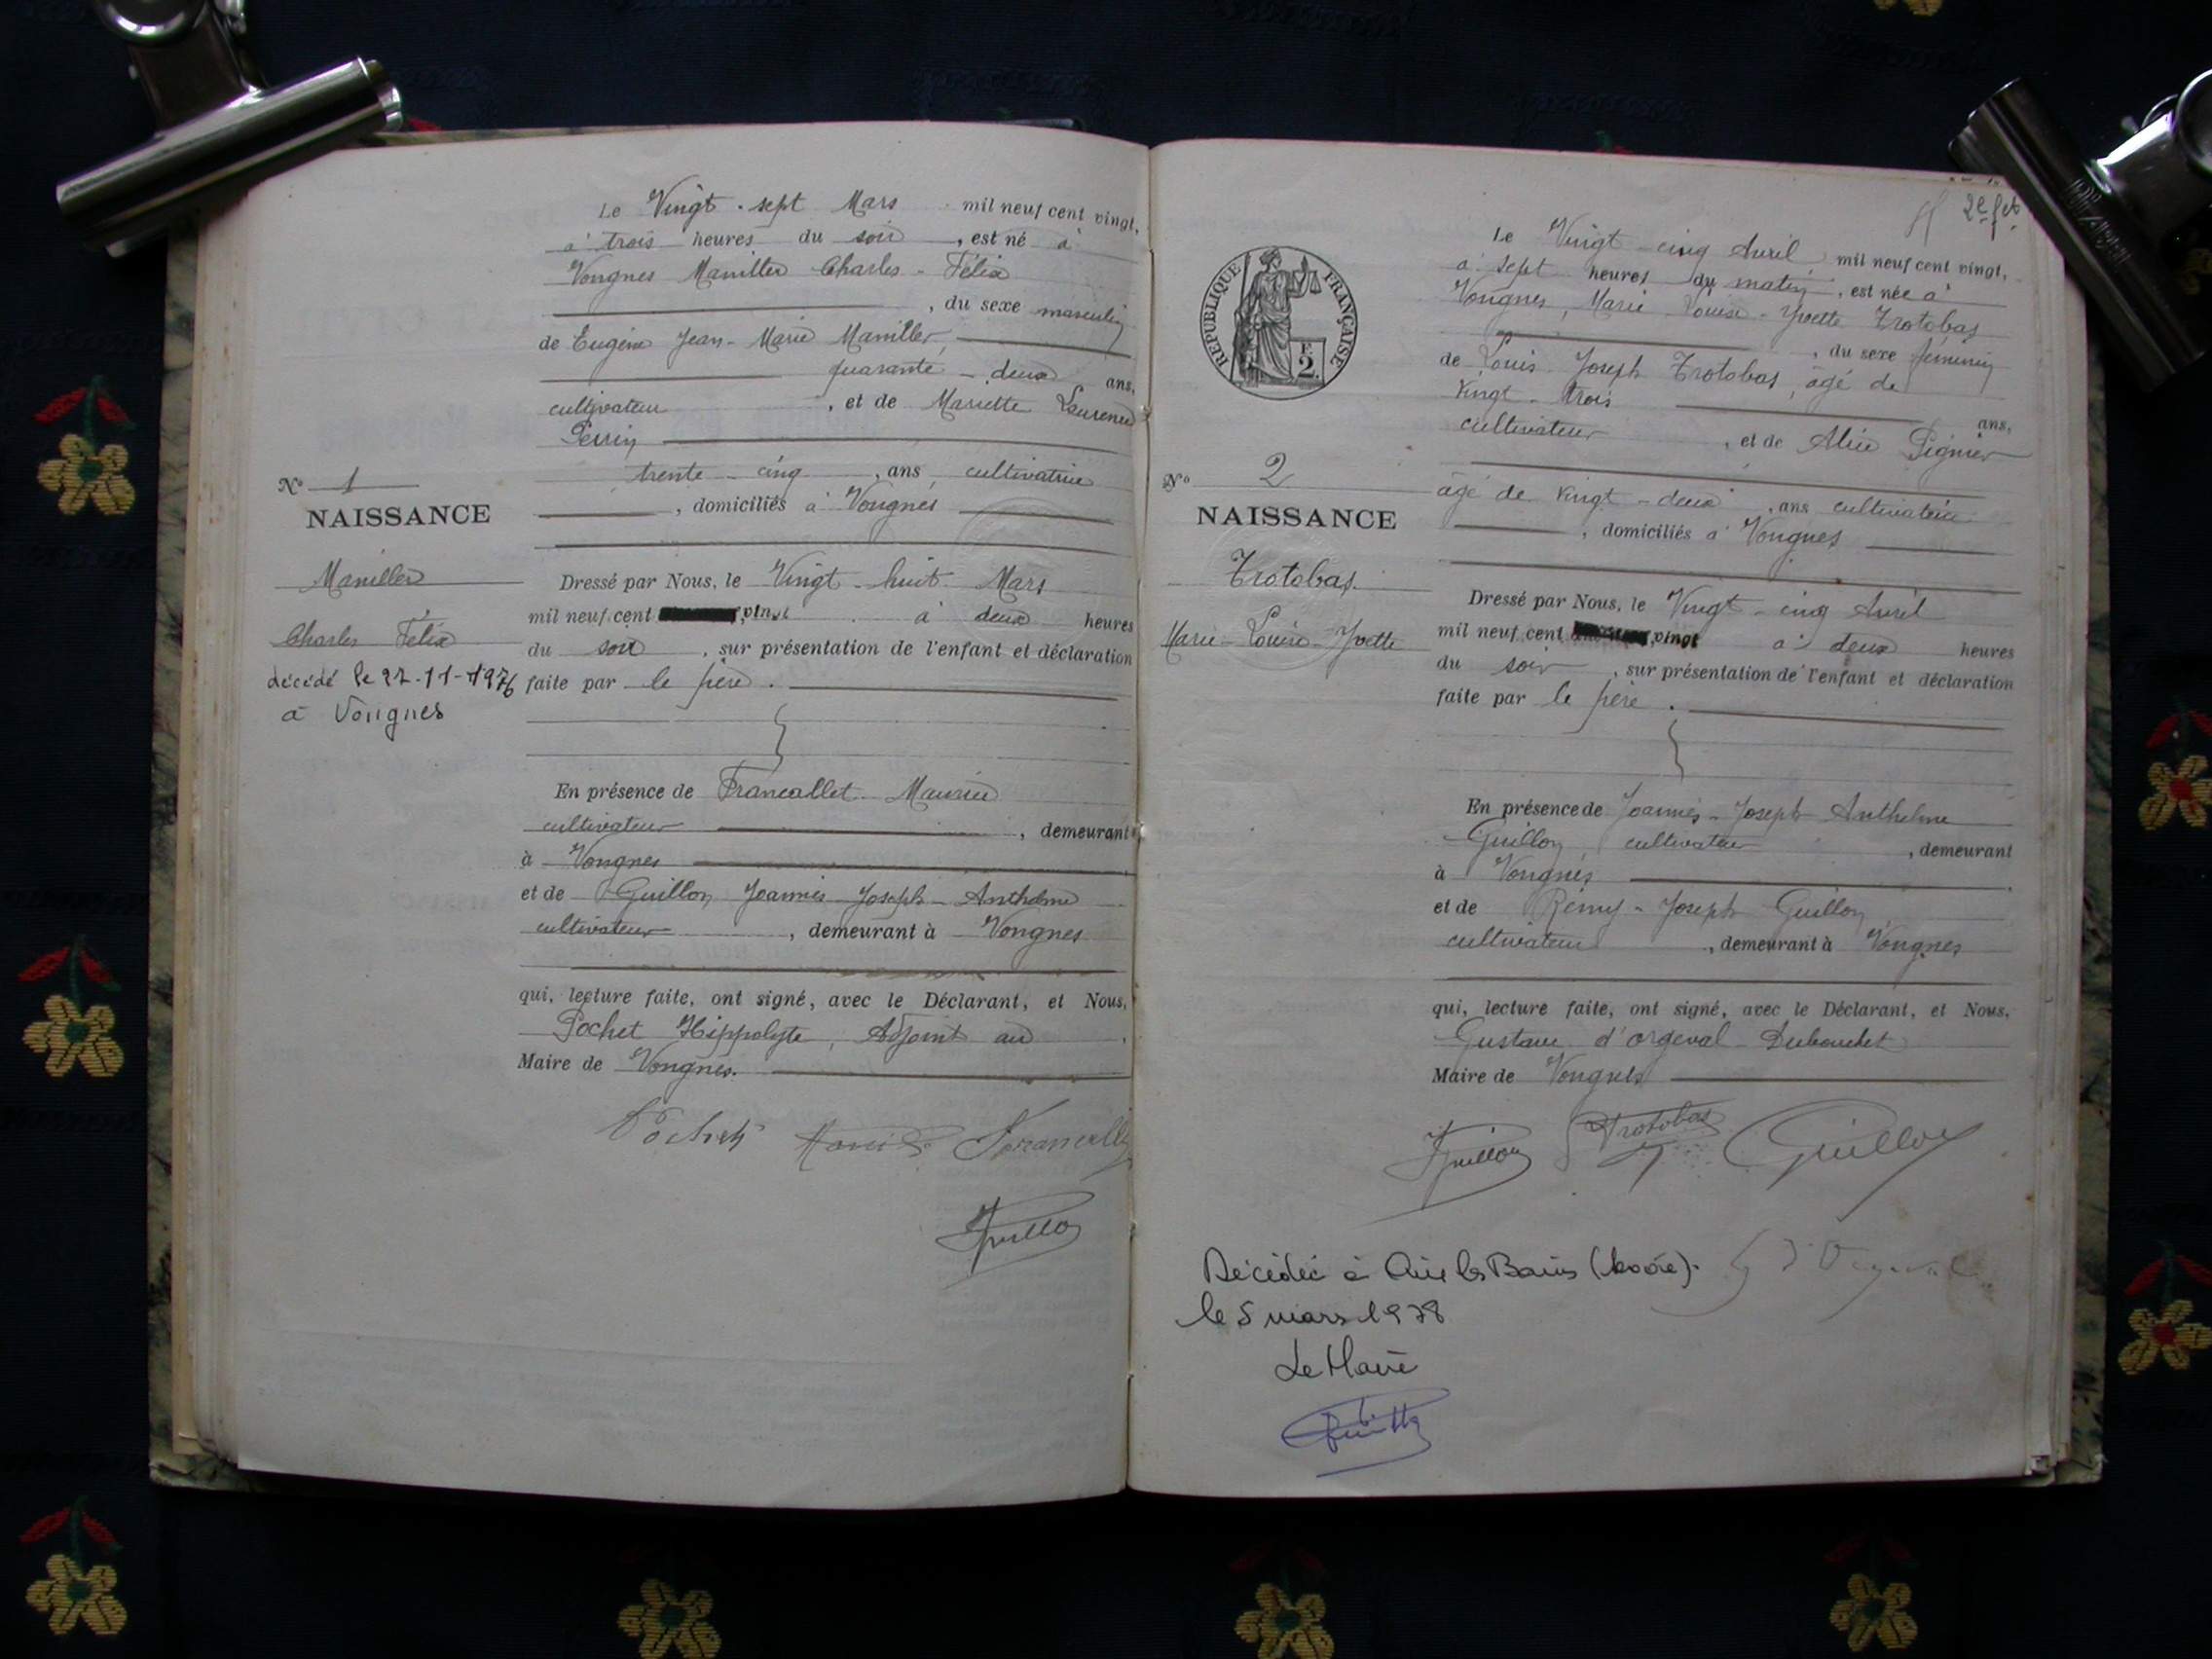 Le Vingt-sept Mars mil neuf cent vingt,
à trois heures du soir, est né à
Vongnes Maniller Charles-Félix
, du sexe masculin
de Eugène Jean-Marie Maniller,
quarante-deux ans,
cultivateur, et de Mariette Laurence
Perrin
trente-cinq, ans, cultivatrice
, domiciliés à Vongnes
N° 1
NAISSANCE
Maniller
Charles Félix
décédé le 27-11-1976
à Vongnes
Dressé par Nous, le Vingt-huit Mars
mil neuf cent vingt à deux heures
du soir, sur présentation de l'enfant et déclaration
faite par le père.
En présence de Francallet Maurice
cultivateur, demeurant
à Vongnes
et de Guillon Joannès Joseph-Anthelme
cultivateur, demeurant à Vongnes
qui, lecture faite, ont signé, avec le Déclarant, et Nous,
Pochet Hippolyte, Adjoint au
Maire de Vongnes.
Pochet
Guillon
2e fet
REPUBLIQUE FRANÇAISE
F.
2.
Le Vingt-cinq Avril mil neuf cent vingt,
à sept heures du matin, est née à
Vongnes, Marie Louise-Yvette Trotobas
, du sexe féminin
de Louis Joseph Trotobas, âgé de
vingt-trois ans,
cultivateur, et de Alice Pignier
âgé de vingt-deux, ans cultivatrice
, domiciliés à Vongnes
N° 2
NAISSANCE
Trotobas
Marie-Louise-Yvette
Dressé par Nous, le Vingt-cinq Avril
mil neuf cent vingt à deux heures
du soir, sur présentation de l'enfant et déclaration
faite par le père.
En présence de Joannès-Joseph Anthelme
Guillon, cultivateur, demeurant
à Vongnes
et de Rémy-Joseph Guillon,
cultivateur, demeurant à Vongnes
qui, lecture faite, ont signé, avec le Déclarant, et Nous,
Gustave d'orgeval Dubouchet
Maire de Vongnes
Guillon Trotobas Guillon
Décédée à Aix les Bains (Savoie).
le 5 mars 1978
Le Maire